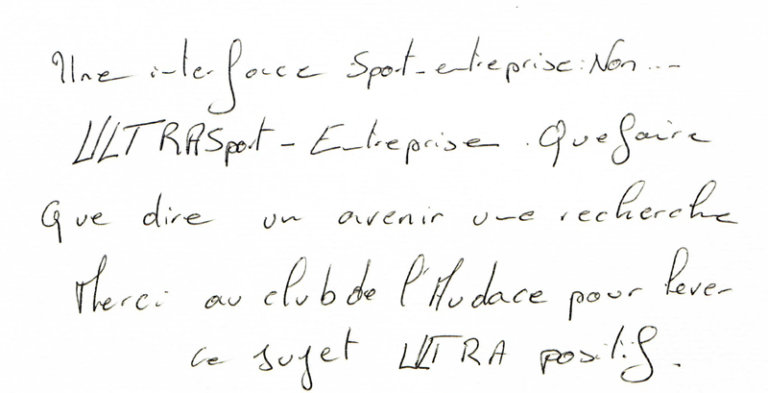 Une interface Sport-entreprise: Non...
ULTRASport - Entreprise. Que faire
Que dire un avenir une recherche
Merci au club de l'Audace pour lever
ce sujet ULTRA positif.